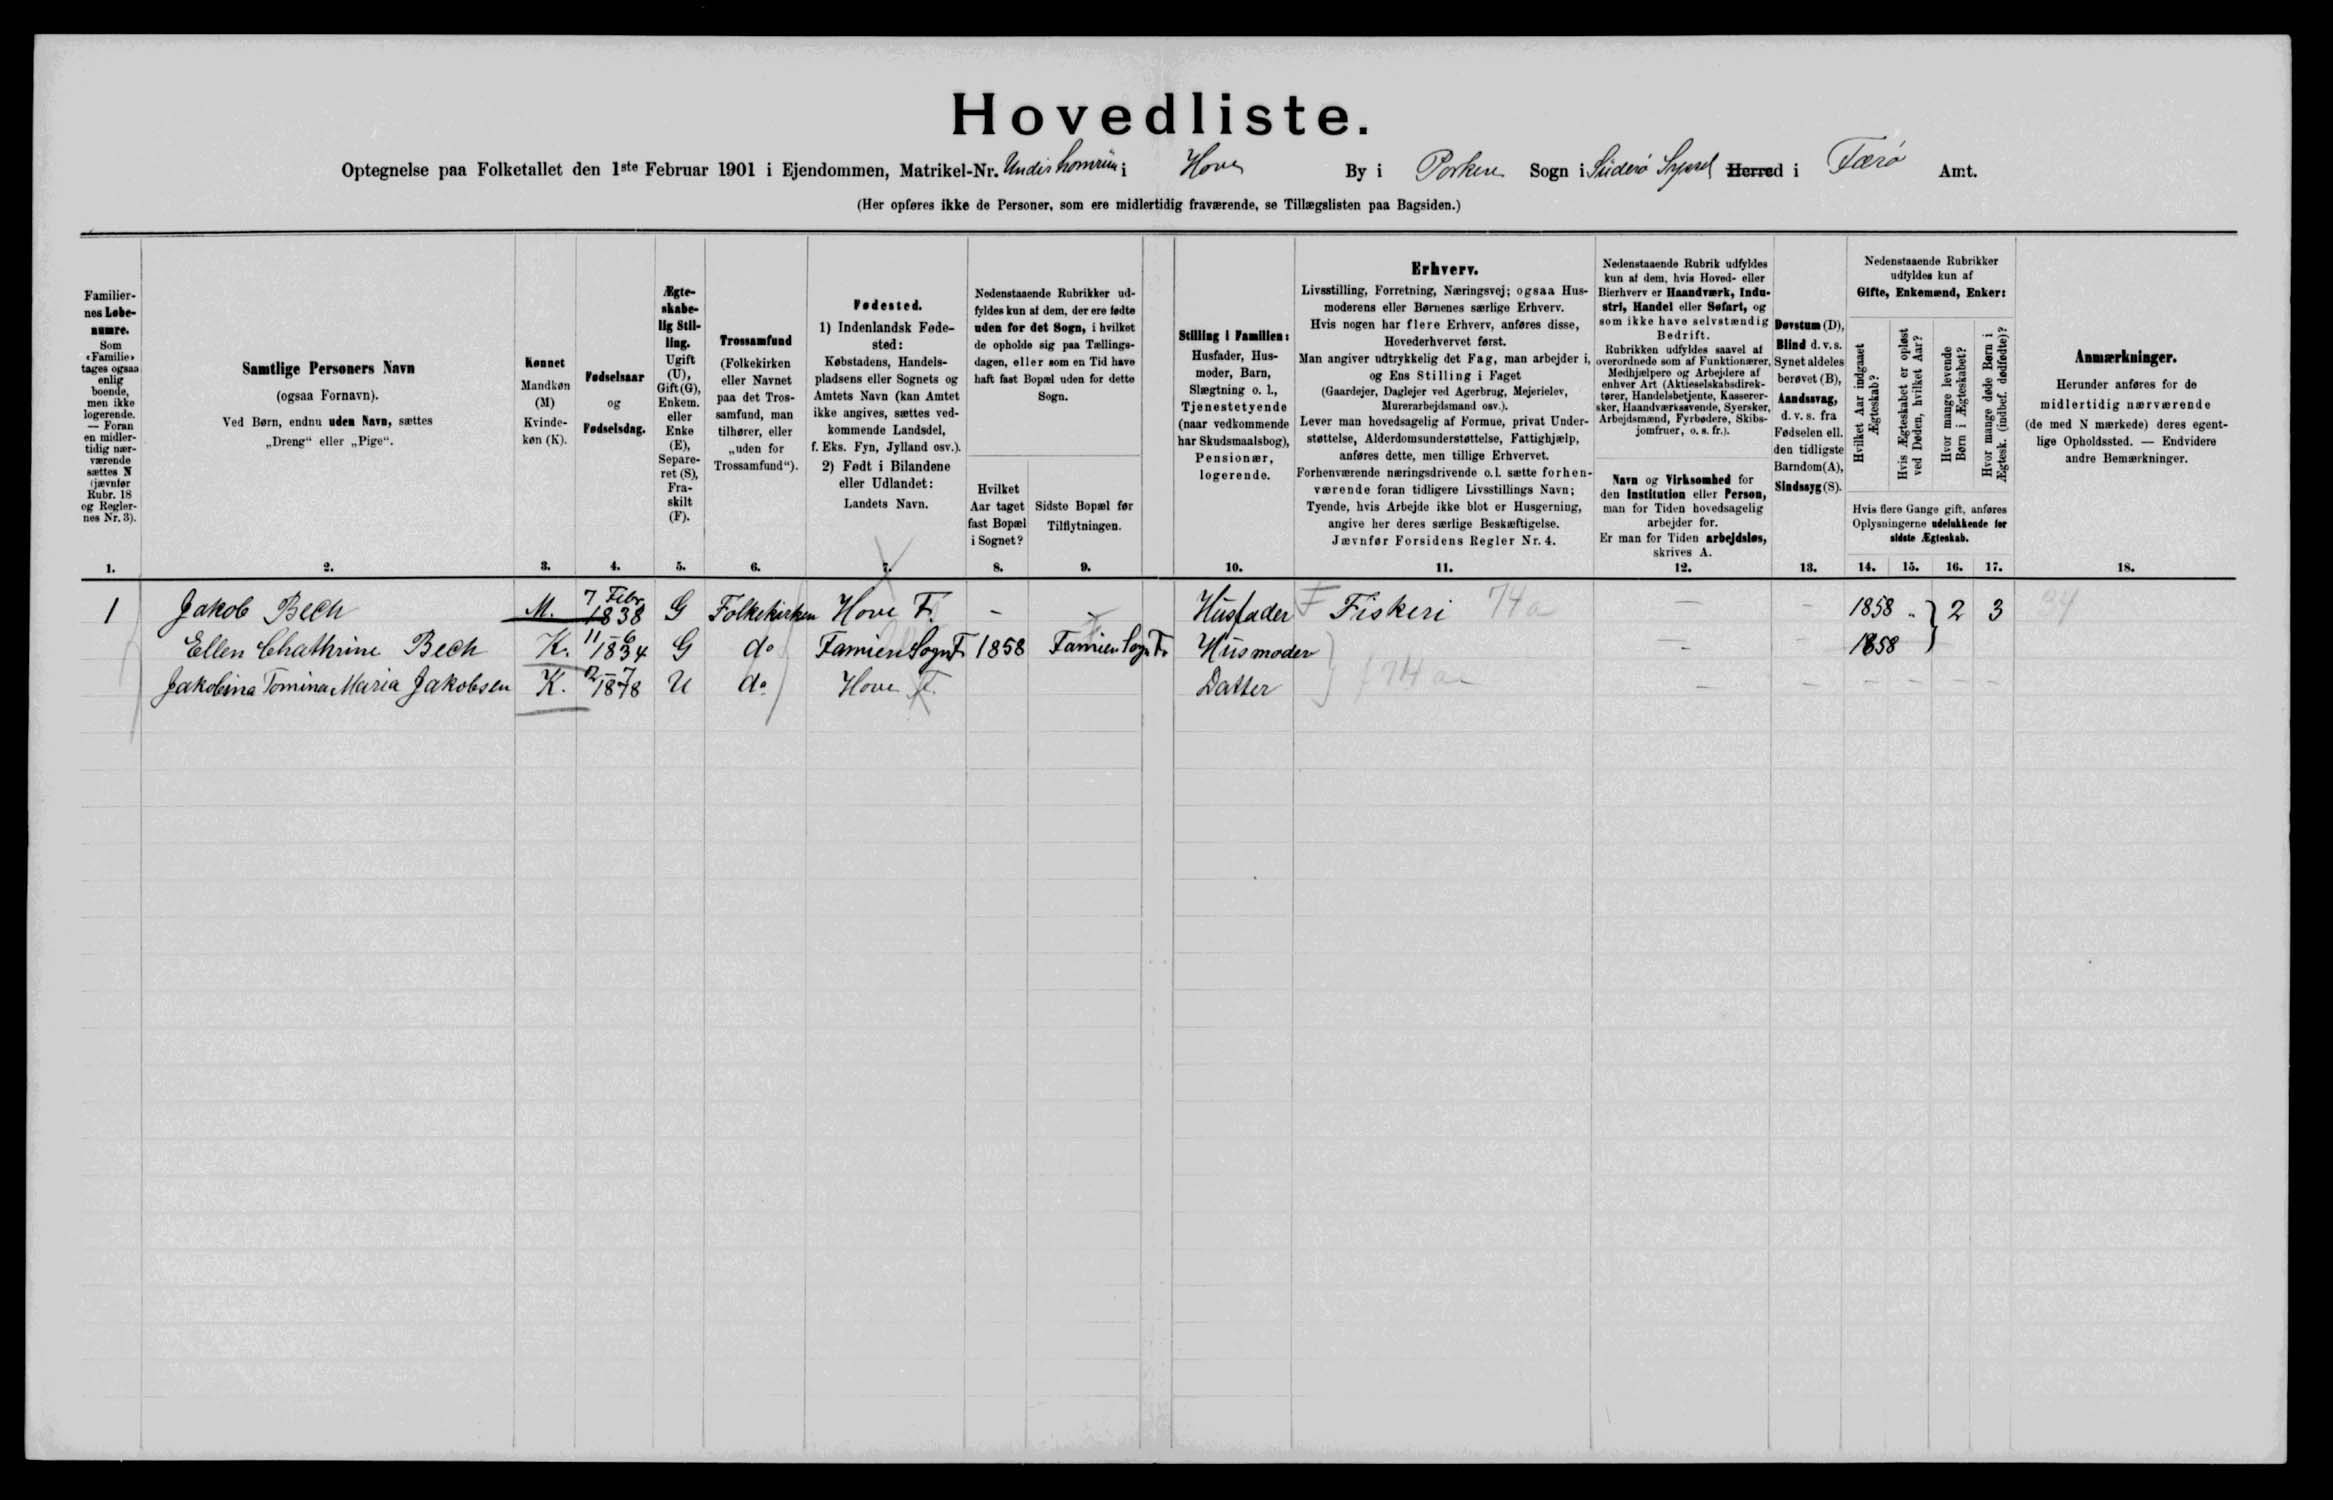 Hovedliste.
Optegnelse paa Folketallet den 1ste Februar 1901 i Ejendommen, Matrikel-Nr. i Hove By i Porkere Sogn i Süderø Syssel Herred i Færø Amt.
(Her opføres ikke de Personer, som ere midlertidig fraværende, se Tillægslisten paa Bagsiden.)
Familiernes Løbenumre.
Som «Familie» tages ogsaa enlig boende, men ikke logerende. — Foran en midlertidig nærværende sættes N (jævnfør Rubr. 18 og Reglernes Nr. 3).
Samtlige Personers Navn
(ogsaa Fornavn).
Ved Børn, endnu uden Navn, sættes
„Dreng“ eller „Pige“.
Kønnet
Mandkøn
(M)
Kvinde-
køn (K).
Fødselsaar
og
Fødselsdag.
Ægte-
skabe-
lig Stil-
ling.
Ugift
(U),
Gift (G),
Enkem.
eller
Enke
(E),
Separe-
ret (S),
Fra-
skilt
(F).
Trossamfund
(Folkekirken
eller Navnet
paa det Tros-
samfund, man
tilhører, eller
„uden for
Trossamfund“).
Fødested.
1) Indenlandsk Føde-
sted:
Købstadens, Handels-
pladsens eller Sognets og
Amtets Navn (kan Amtet
ikke angives, sættes ved-
kommende Landsdel,
f. Eks. Fyn, Jylland osv.).
2) Født i Bilandene
eller Udlandet:
Landets Navn.
Nedenstaaende Rubrikker ud-
fyldes kun af dem, der ere fødte
uden for det Sogn, i hvilket
de opholde sig paa Tællings-
dagen, eller som en Tid have
haft fast Bopæl uden for dette
Sogn.
Hvilket
Aar taget
fast Bopæl
i Sognet?
Sidste Bopæl før
Tilflytningen.
Stilling i Familien:
Husfader, Hus-
moder, Barn,
Slægtning o. l.,
Tjenestetyende
(naar vedkommende
har Skudsmaalsbog),
Pensionær,
logerende.
Erhverv.
Livsstilling, Forretning, Næringsvej; ogsaa Hus-
moderens eller Børnenes særlige Erhverv.
Hvis nogen har flere Erhverv, anføres disse,
Hovederhvervet først.
Man angiver udtrykkelig det Fag, man arbejder i,
og Ens Stilling i Faget
(Gaardejer, Daglejer ved Agerbrug, Mejerielev,
Murerarbejdsmand osv.).
Lever man hovedsagelig af Formue, privat Under-
støttelse, Alderdomsunderstøttelse, Fattighjælp,
anføres dette, men tillige Erhvervet.
Forhenværende næringsdrivende o. l. sætte forhen-
værende foran tidligere Livsstillings Navn;
Tyende, hvis Arbejde ikke blot er Husgerning,
angive her deres særlige Beskæftigelse.
Jævnfør Forsidens Regler Nr. 4.
Nedenstaaende Rubrik udfyldes
kun af dem, hvis Hoved- eller
Bierhverv er Haandværk, Indu-
stri, Handel eller Søfart, og
som ikke have selvstændig
Bedrift.
Rubrikken udfyldes saavel af
overordnede som af Funktionærer,
Medhjælpere og Arbejdere af
enhver Art (Aktieselskabsdirek-
tører, Handelsbetjente, Kasserer-
sker, Haandværkssvende, Syersker,
Arbejdsmænd, Fyrbødere, Skibs-
jomfruer, o. s. fr.).
Navn og Virksomhed for
den Institution eller Person,
man for Tiden hovedsagelig
arbejder for.
Er man for Tiden arbejdsløs,
skrives A.
Døvstum (D),
Blind d. v. s.
Synet aldeles
berøvet (B),
Aandssvag,
d. v. s. fra
Fødselen ell.
den tidligste
Barndom (A),
Sindssyg (S).
Nedenstaaende Rubrikker
udfyldes kun af
Gifte, Enkemænd, Enker:
Hvilket Aar indgaaet
Ægteskab?
Hvis Ægteskabet er opløst
ved Døden, hvilket Aar?
Hvor mange levende
Børn i Ægteskabet?
Hvor mange døde Børn i
Ægtesk. (indbef. dødfødte)?
Hvis flere Gange gift, anføres
Oplysningerne udelukkende for
sidste Ægteskab.
Anmærkninger.
Herunder anføres for de
midlertidig nærværende
(de med N mærkede) deres egent-
lige Opholdssted. — Endvidere
andre Bemærkninger.
1. 2. 3. 4. 5. 6. 7. 8. 9. 10. 11. 12. 13. 14. 15. 16. 17. 18.
1 Jakob Bech M. 7 Febr 1838 G Folkekirken Hove F. – – Husfader F Fiskeri 74a – – 1858 " } 2 3
Ellen Chathrine Bech K. 11–6 1834 G do Famien Sogn F. 1858 Famien Sogn F. Husmoder – – 1858
Jakobina Tomina Maria Jakobsen K. 2–7 1878 U do Hove F. Datter 74a – – – – – –